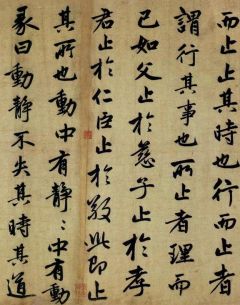 而止止其時
謂行其事也所止者理而
已如父止於慈子止於孝
君止於仁臣止於敬此即止
其所也動中有靜〻中有動
彖曰動靜不失其時其道